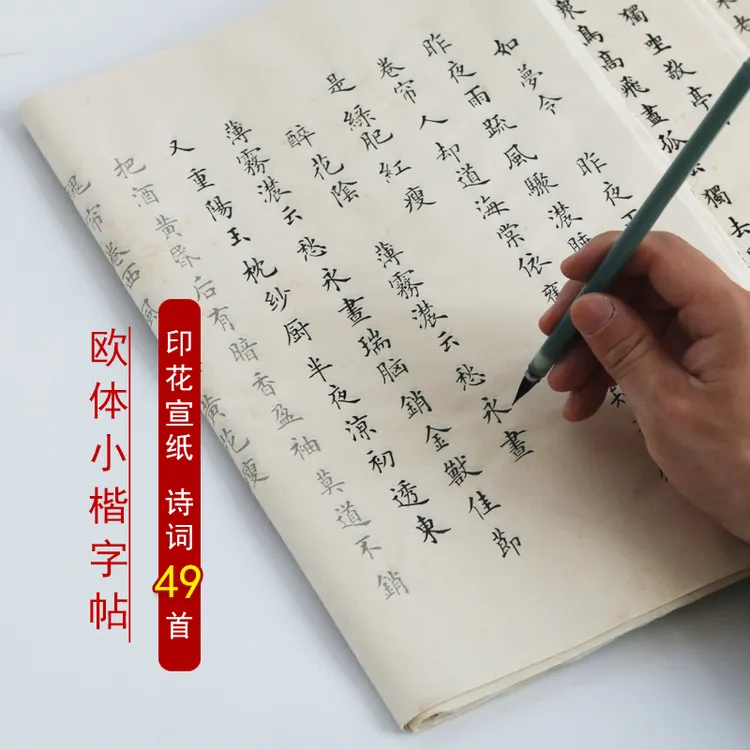 獨坐敬亭
衆鳥高飛盡孤云獨去
如夢令 昨夜
昨夜雨疏風驟濃睡
卷帘人却道海棠依舊
是綠肥紅瘦
醉花陰 薄霧濃云愁永晝
薄霧濃云愁永晝瑞脑銷金獸佳節
又重陽玉枕紗厨半夜凉初透東
把酒黄昏后有暗香盈袖莫道不銷
帘卷西風 黄花瘦
印花宣纸 诗词49首
欧体小楷字帖